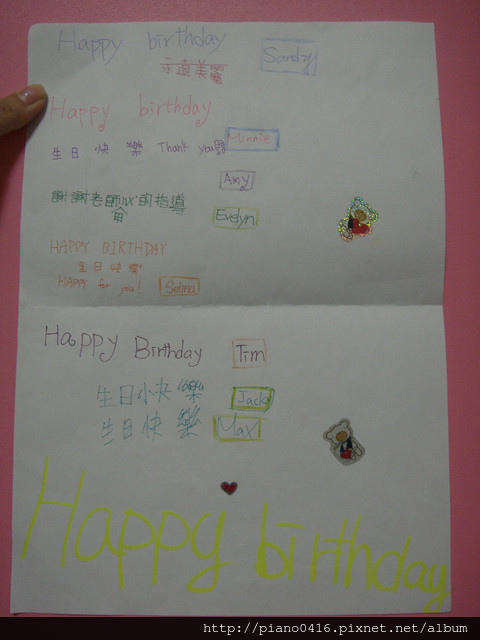 Happy birthday Sandy
永遠美麗
Happy birthday
生日快樂 Thank you Minnie
Amy
謝謝老師的指導
Evelyn
HAPPY BIRTHDAY
生日快樂
HAPPY for you! Selina
Happy Birthday Tim
生日快樂 Jack
生日快樂 Max
Happy birthday
http://piano0416.pixnet.net/album